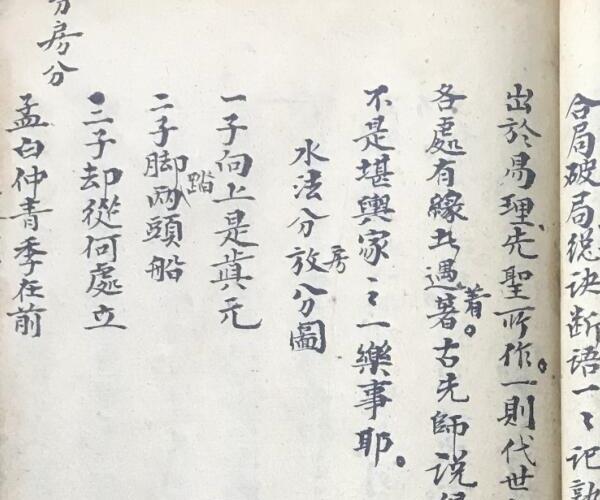 合局破局総诀断语一〻记熟
出於易理先聖所作。一則代世
各處有緣此遇著着。古先師説
不是堪輿家〻一樂事耶。
水法分放房分圖
一子向上是眞元
二子脚踏两頭船
三子却從何處立
孟白仲青季在前
房分